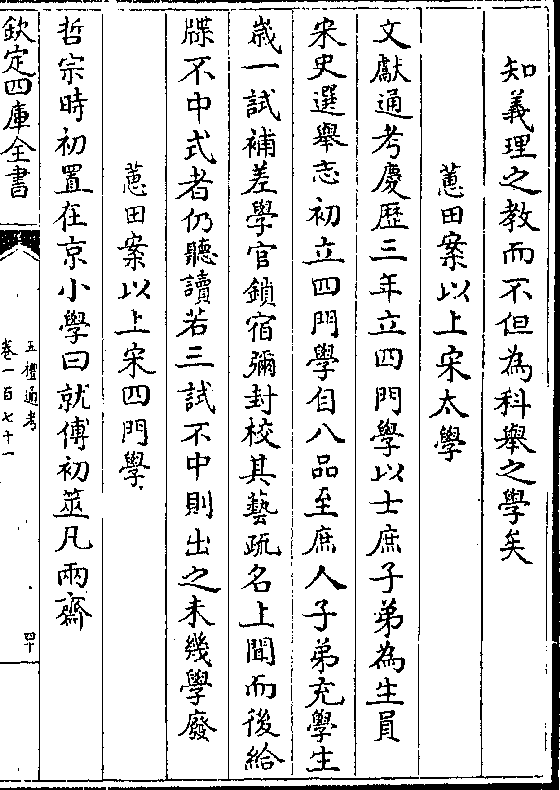 知義理之教而不但為科舉之學矣
蕙田案以上宋太學
文獻通考慶歷三年立四門學以士庶子弟為生員
宋史選舉志初立四門學自八品至庶人子弟充學生
歲一試補差學官鎖宿彌封校其藝疏名上聞而後給
牒不中式者仍聽讀若三試不中則出之未幾學廢
蕙田案以上宋四門學
哲宗時初置在京小學曰就傅初筮凡兩齋
欽定四庫全書
五禮通考
卷一百七十一
四十